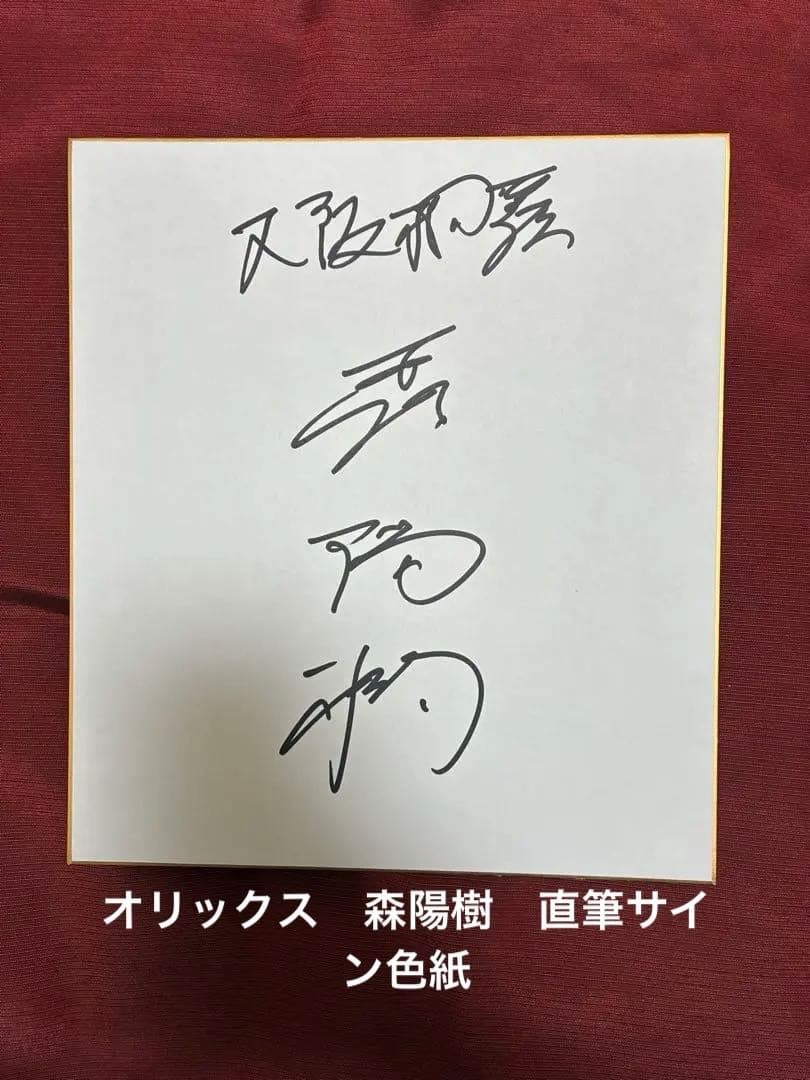 大阪桐蔭
森
陽
樹
オリックス　森陽樹　直筆サイ
ン色紙